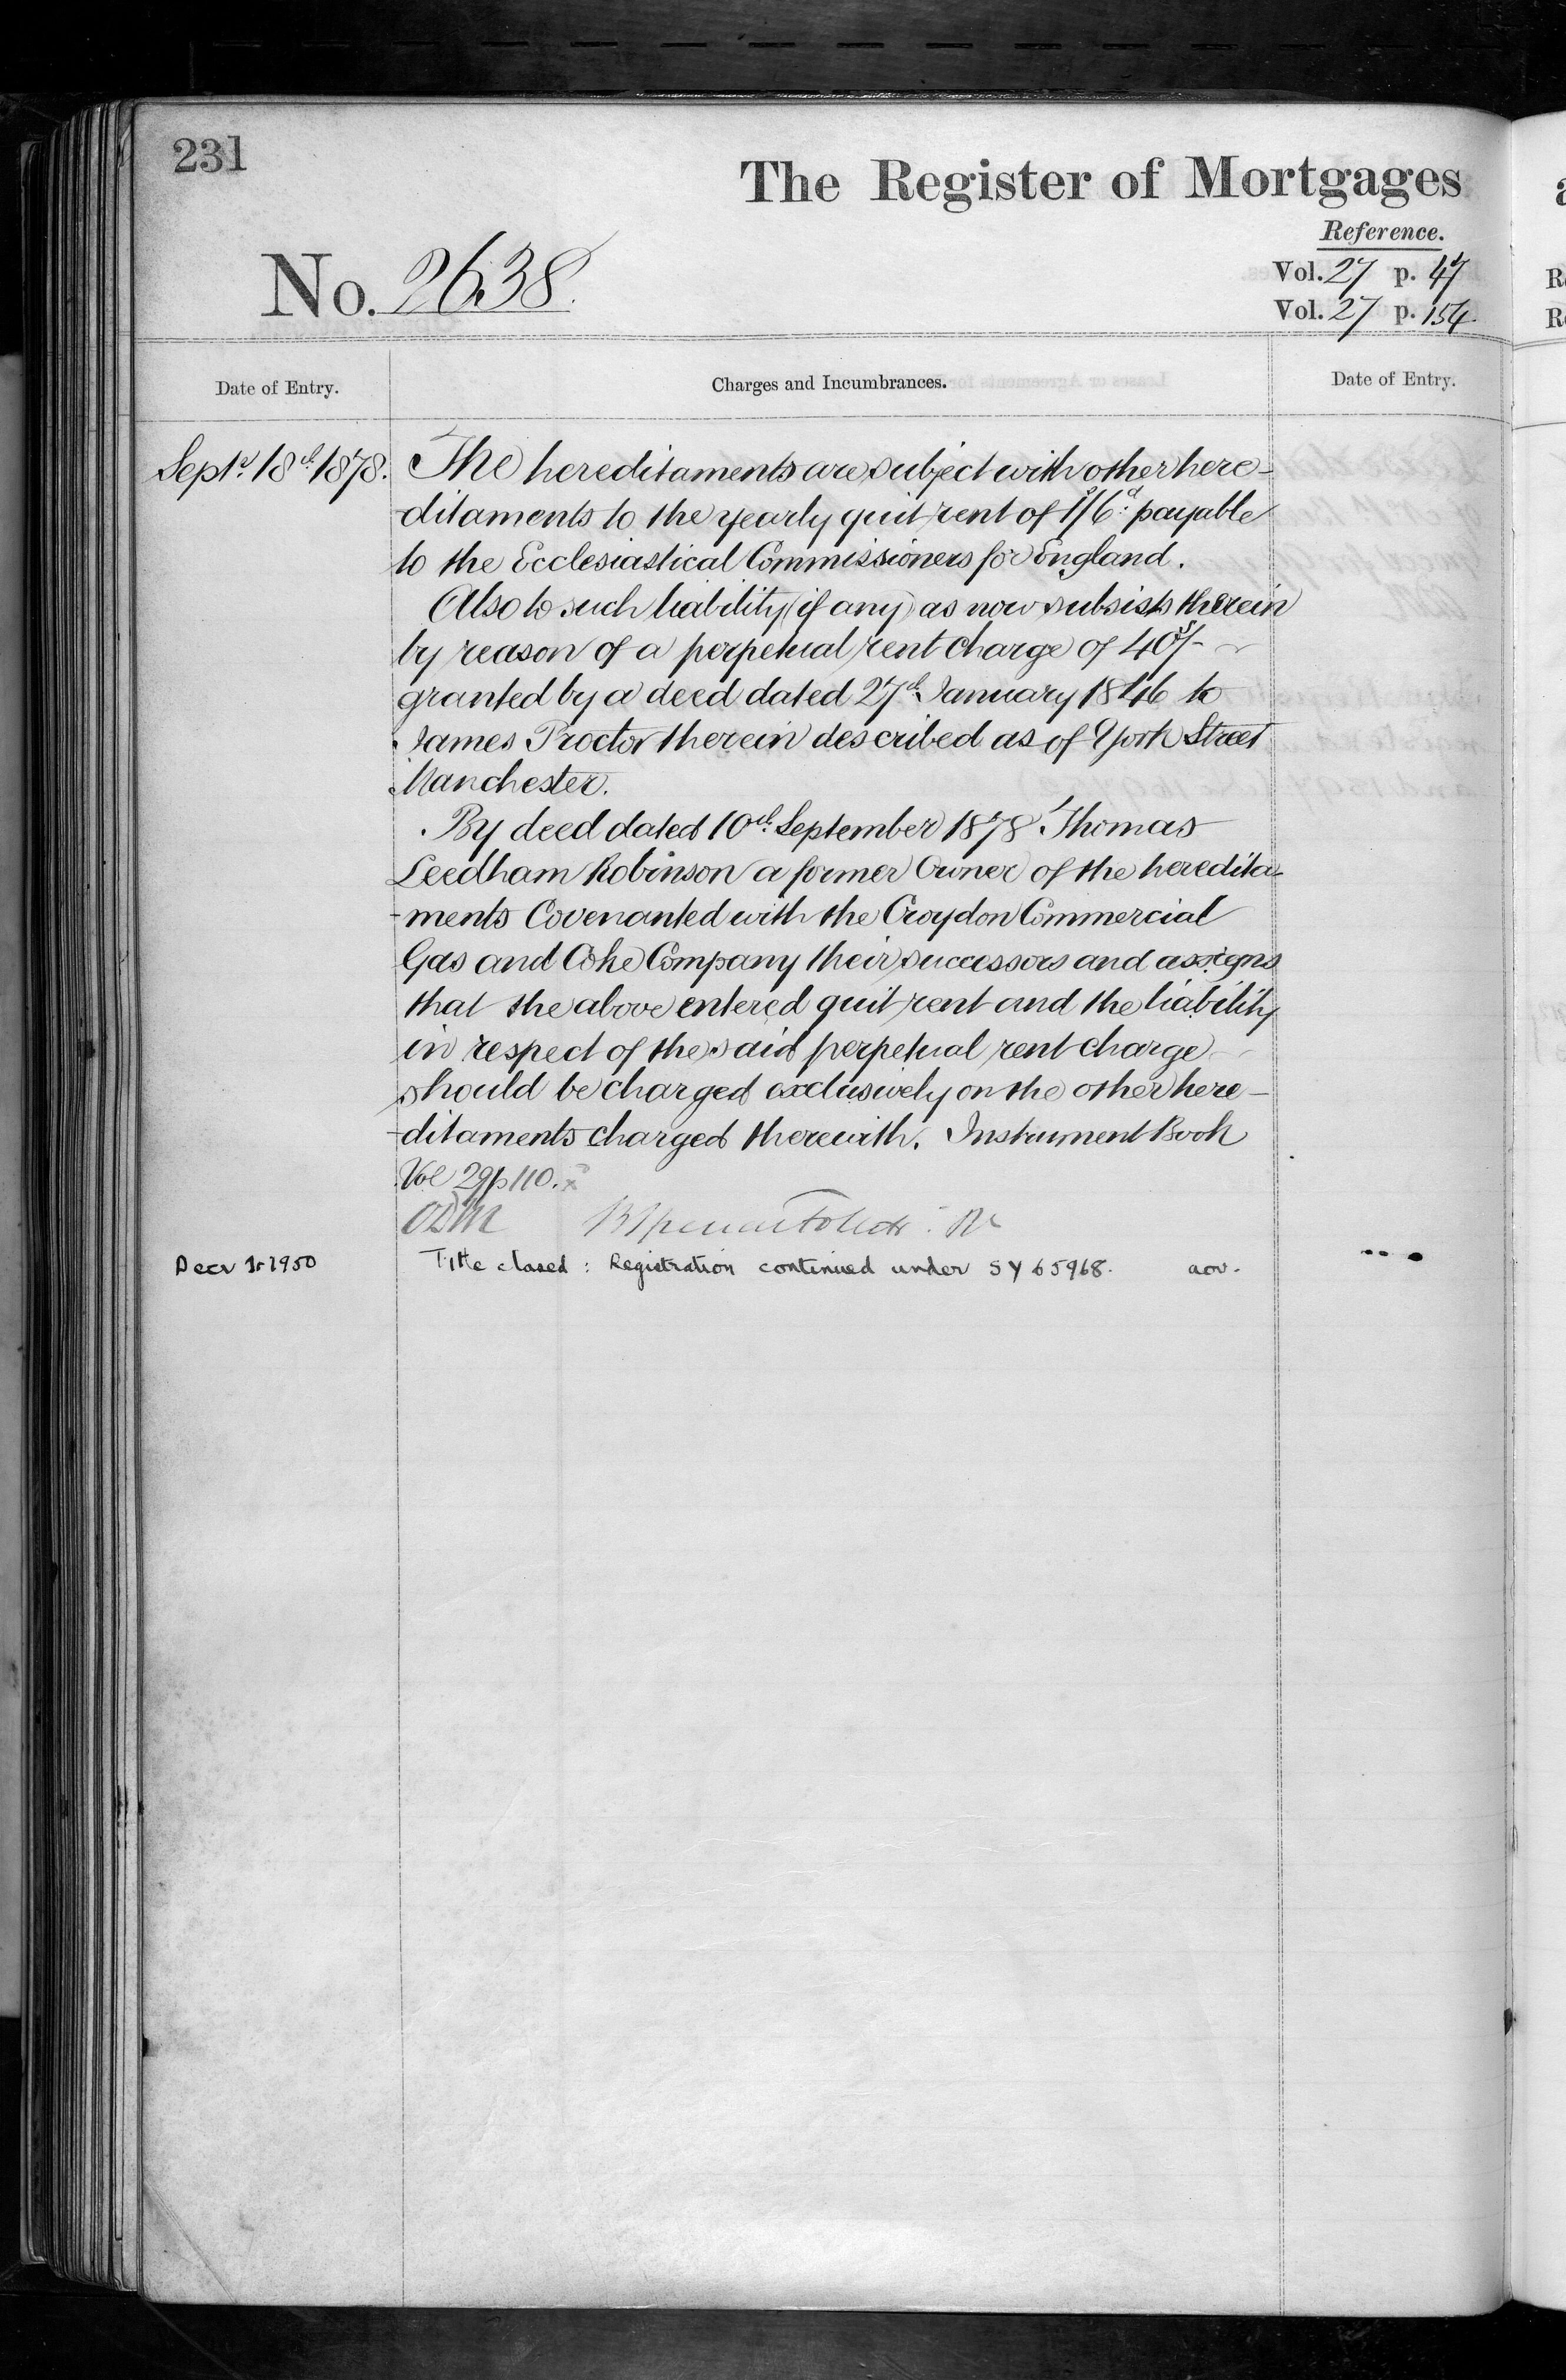 231
The Register of Mortgages
Reference.
No. 2638.
Vol. 27 p. 47
Vol. 27 p. 154
Date of Entry.
Charges and Incumbrances.
Date of Entry.
Septr. 18th 1878.
The hereditaments are subject with other here-
-ditaments to the yearly quit rent of 1s/6d. payable
to the Ecclesiastical Commissioners for England.
Also to such liability (if any) as now subsists therein
by reason of a perpetual rent charge of 40s/-
granted by a deed dated 27th January 1846 to
James Proctor therein described as of York Street
Manchester.
By deed dated 10th September 1878 Thomas
Leedham Robinson a former Owner of the heredita-
-ments Covenanted with the Croydon Commercial
Gas and Coke Company their successors and assigns
that the above entered quit rent and the liability
in respect of the said perpetual rent charge
should be charged exclusively on the other here-
-ditaments charged therewith. Instrument Book
Vol 29 p 110.
Decr 1st 1950
Title closed: Registration continued under SY 65968. aov.